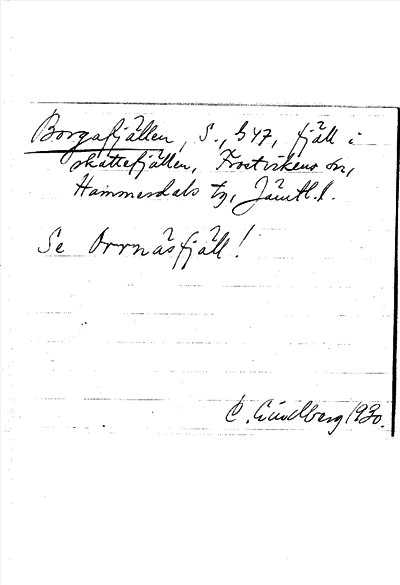 Borgafjällen, S., b 47, fjäll i
skattefjällen, Frostvikens sn,
Hammerdals tg, Jämtl. l.
Se Orrnäsfjäll!
C. Lindberg 1930.